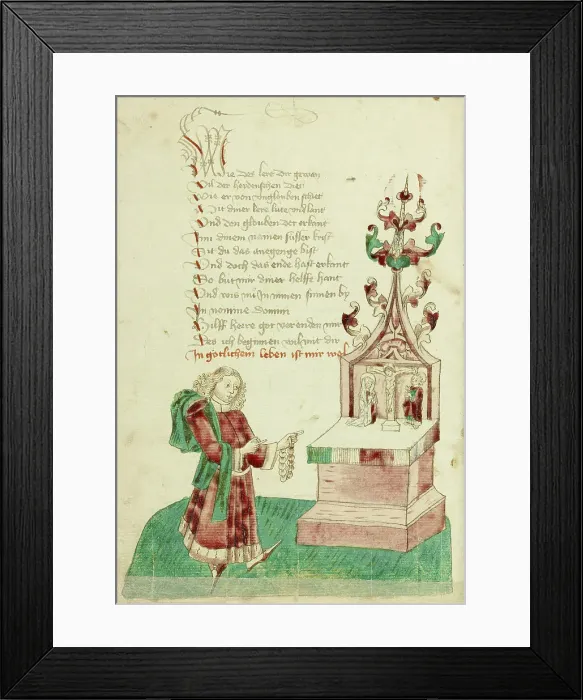 Wie des lere dir gewan
Vil der heidnischen diet
Wie er von unglauben schiet
Mit diner lere lute und lant
Und den glouben der erkant
Inn dinem namen susser krist
Sit du das anegenge bist
Und doch das ende hast erkant
So but mir diner helffe hant
Und wis mir In minen sinnen by
In nomine domini
Hilff herre got vor enden mir
Des ich beginnen wil mit dir
In gotlichem leben ist mir wol